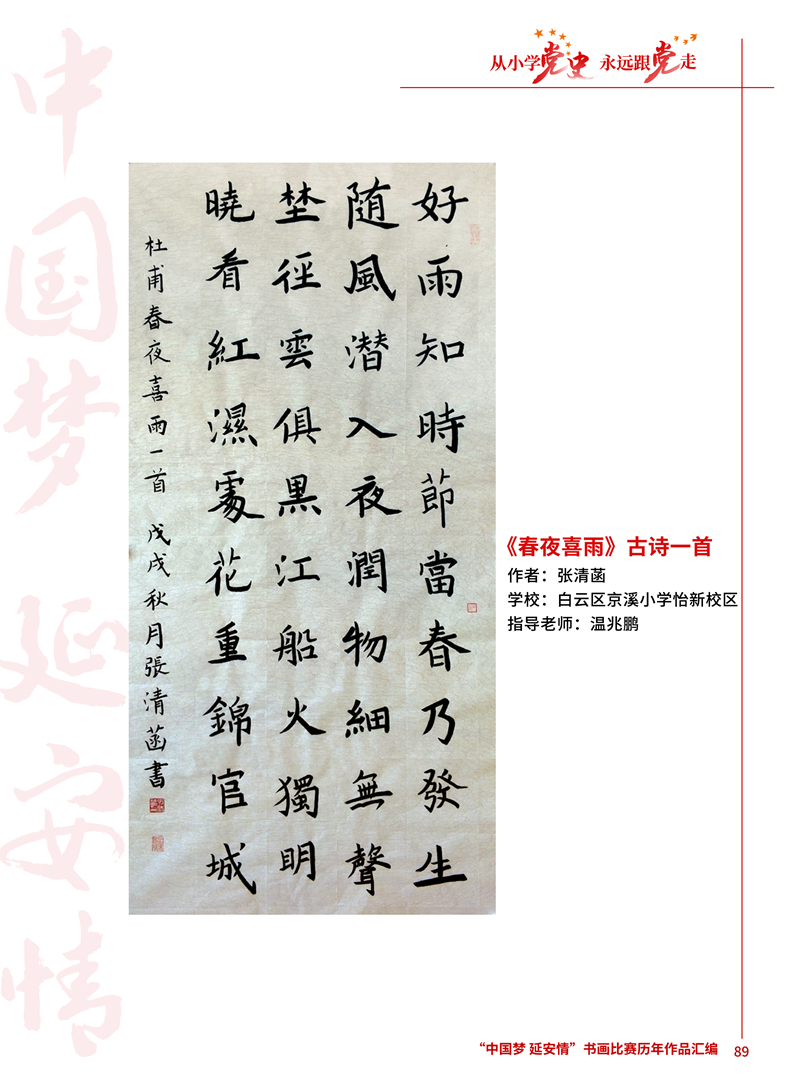 从小学党史 永远跟党走
中国梦 延安情
好雨知時節當春乃發生
随風潜入夜潤物細無聲
埜徑雲俱黒江船火獨明
曉看紅濕處花重錦官城
杜甫春夜喜雨一首 戊戌秋月張清菡書
《春夜喜雨》古诗一首
作者：张清菡
学校：白云区京溪小学怡新校区
指导老师：温兆鹏
“中国梦 延安情”书画比赛历年作品汇编 89